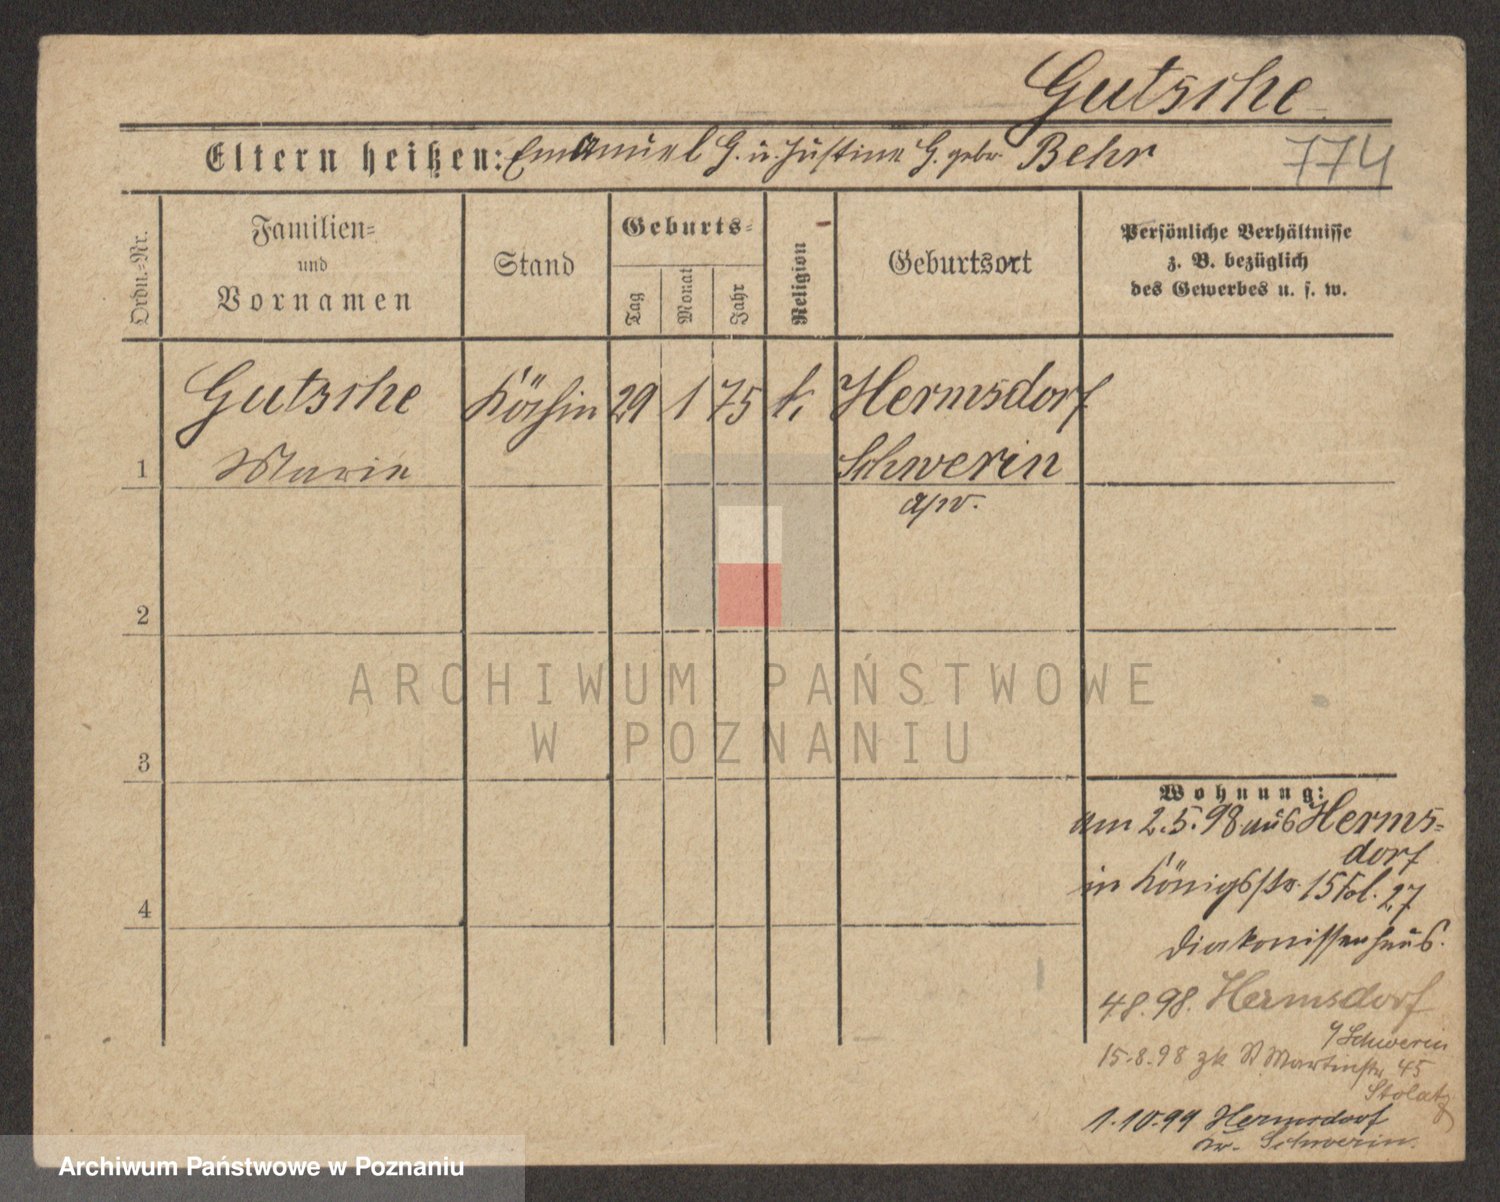 Gutsche
Eltern heißen: Emanuel G. u. Justine G. gebr. Behr
774
Ordn.-Nr.
Familien=
und
Vornamen
Stand
Geburts=
Tag
Monat
Jahr
Religion
Geburtsort
Persönliche Verhältnisse
z. B. bezüglich
des Gewerbes u. s. w.
Gutsche Köchin 29 1 75 k. Hermsdorf
1 Marie Schwerin
a/w.
2
ARCHIWUM PAŃSTWOWE
W POZNANIU
3
Wohnung:
am 2.5.98 aus Herms=
dorf
in Königsstr. 15 Fol. 27
Diakonissenhaus.
4
4.8.98. Hermsdorf
Schwerin
15.8.98 zk St Martinstr 45
1.10.99 Hermsdorf
Kr. Schwerin.
Archiwum Państwowe w Poznaniu